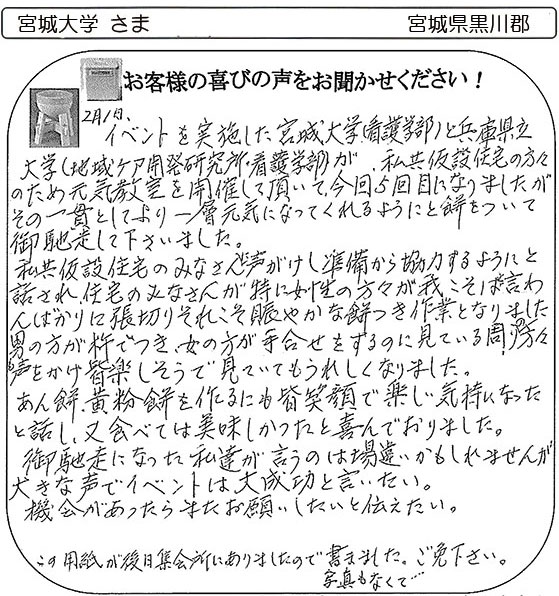 宮城大学 さま
宮城県黒川郡
お客様の喜びの声をお聞かせください!
2月1日、
イベントを実施した宮城大学(看護学部)と兵庫県立
大学(地域ケア開発研究所・看護学部)が 私共仮設住宅の方々
のため元気教室を開催して頂いて、今回5回目になりましたが
その一貫としてより一層元気になってくれるようにと餅をついて
御馳走して下さいました。
私共仮設住宅のみなさんに声がけし準備から協力するようにと
話され、住宅のみなさんが特に女性の方々が我こそは言わ
んばかりに張切りそれこそ賑やかな餅つき作業となりました
男の方が杵でつき、女の方が手合せをするのに見ている周りの方々
声をかけ皆楽しそうで見ていてもうれしくなりました。
あん餅、黄粉餅を作るにも皆笑顔で楽しい気持になった
と話し、又食べては美味しかったと喜んでおりました。
御馳走になった私達が言うのは場違いかもしれませんが
大きな声でイベントは大成功と言いたい。
機会があったらまたお願いしたいと伝えたい。
この用紙が後日集会所にありましたので書きました。ご免下さい。
写真もなくて…